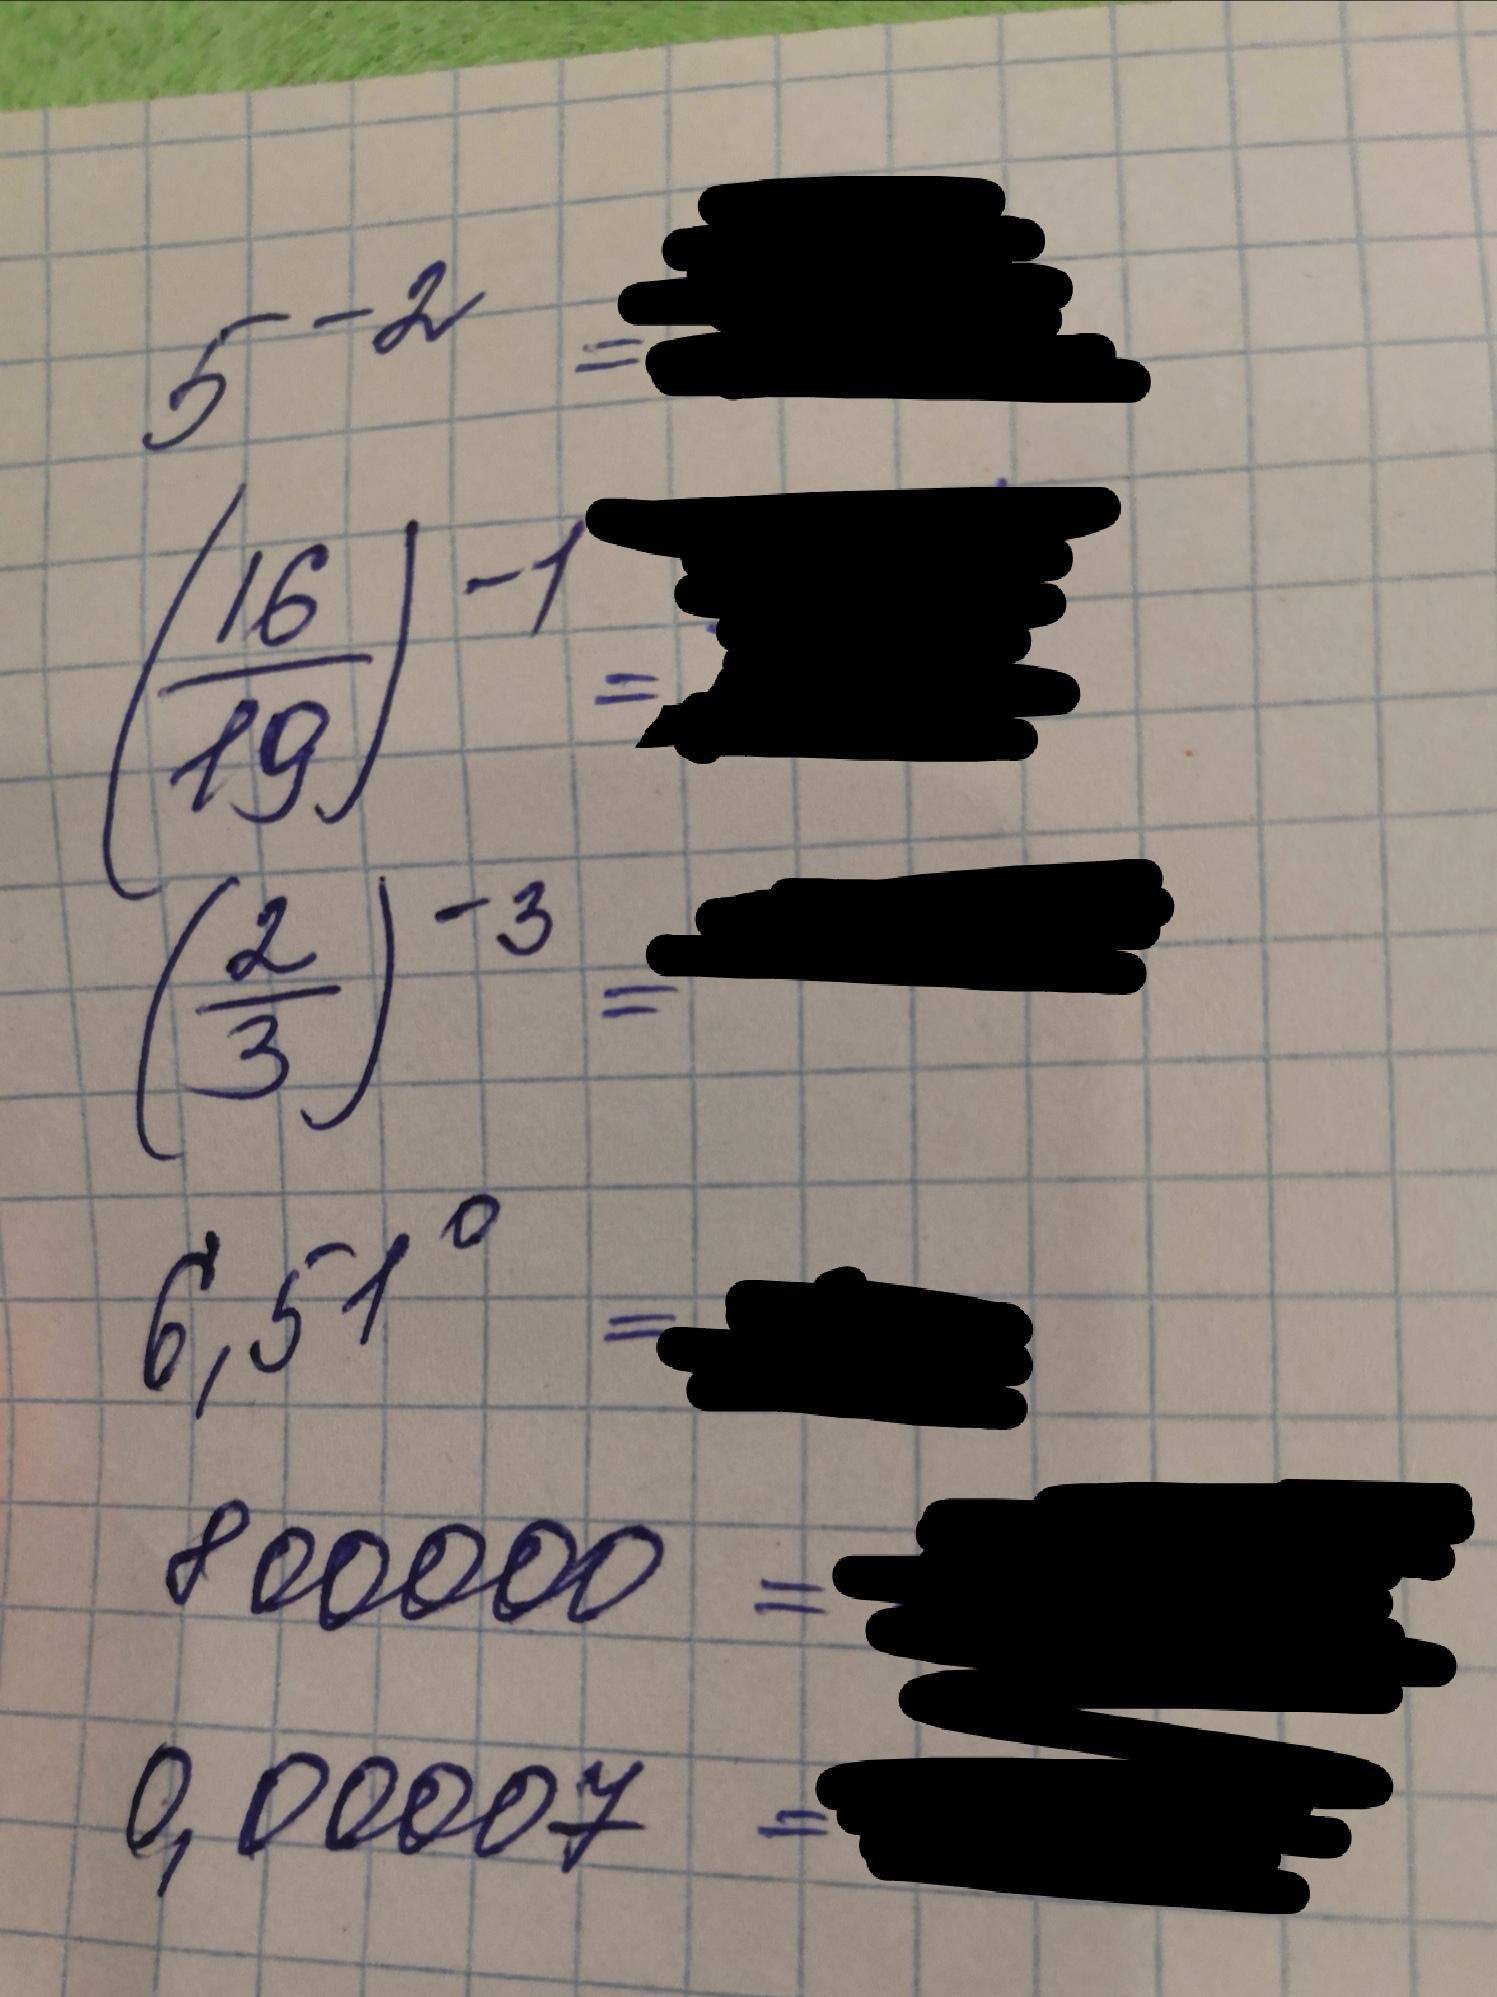 5⁻² =
(16/19)⁻¹ =
(2/3)⁻³ =
6,51⁰ =
800000 =
0,00007 =